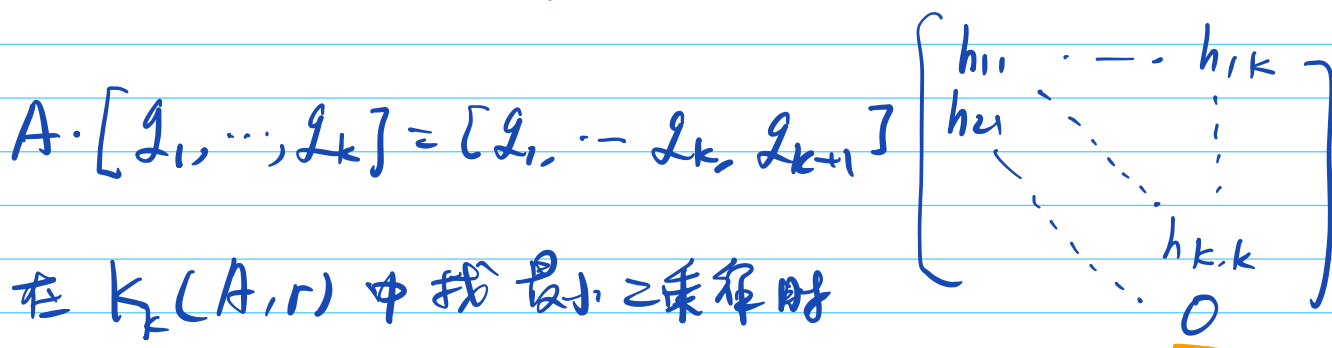 A·[q₁, ⋯, q_k] = [q₁, ⋯ q_k, q_{k+1}] [h₁₁ ⋯ h₁k
h₂₁
h_{k,k}
0]
在 K_k(A, r) 中找最小二乘解时